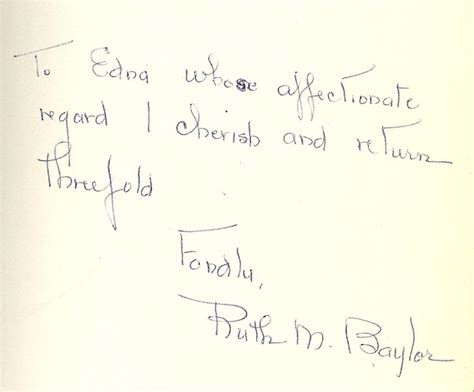 To Edna whose affectionate
regard I cherish and return
threefold
Fondly,
Ruth M. Baylor